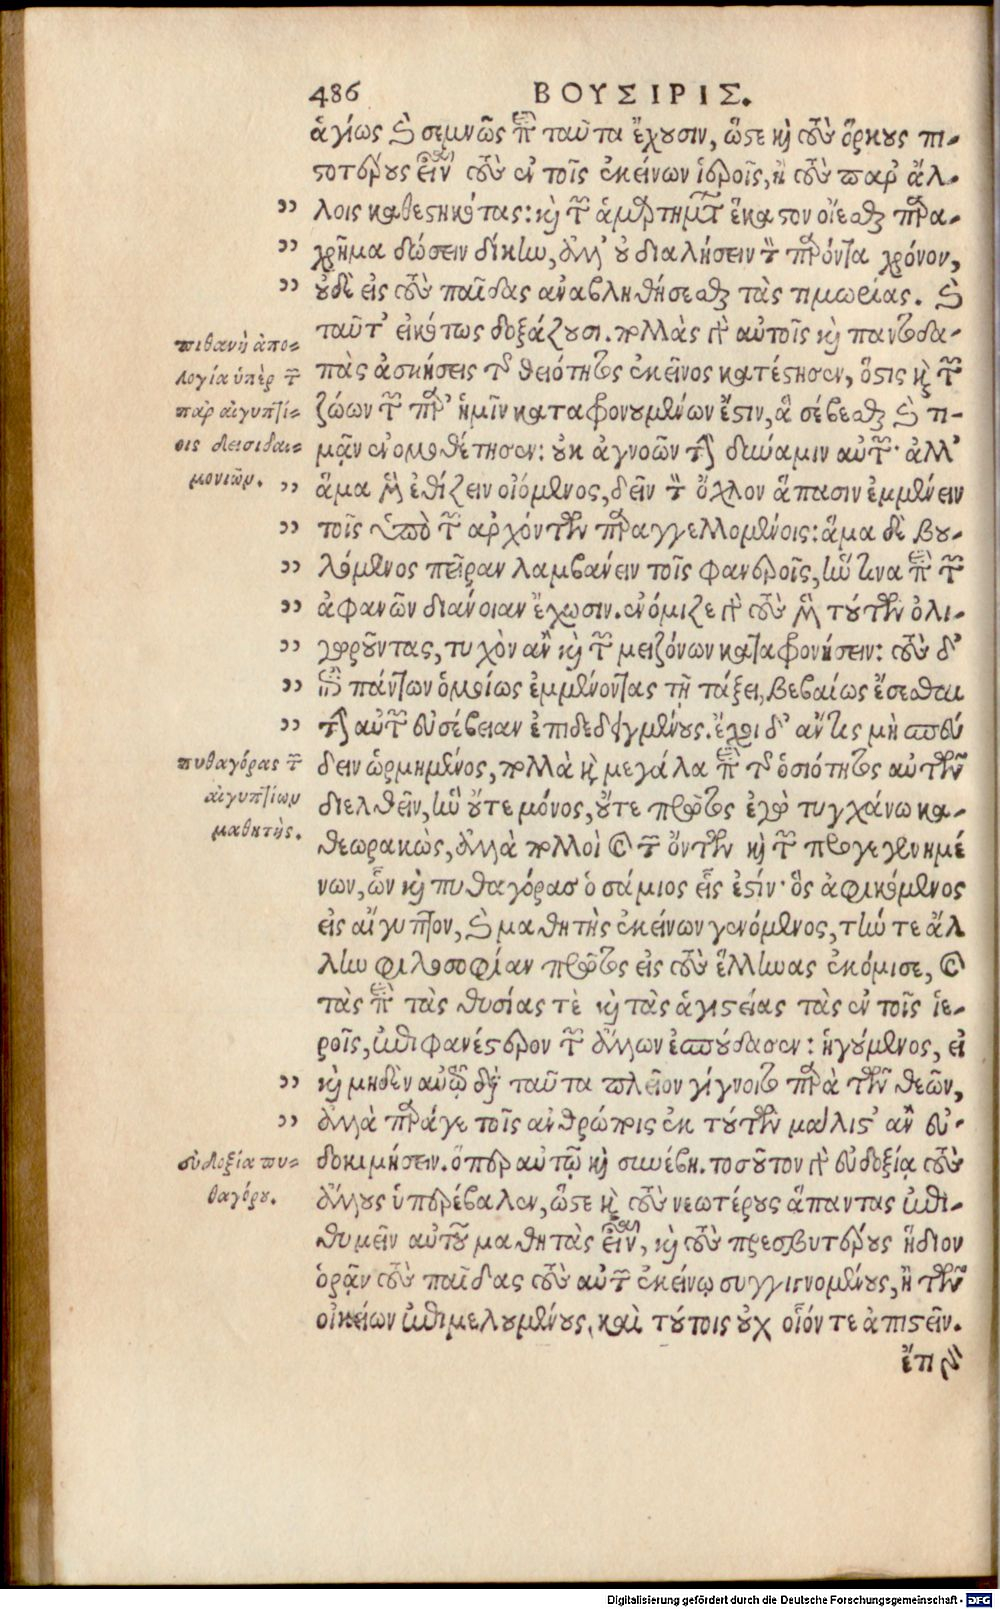 486 ΒΟΥΣΙΡΙΣ.
ἁγίως καὶ σεμνῶς περὶ ταῦτα ἔχουσιν, ὥστε καὶ τοὺς ὅρκους πι-
στοτέρους εἶναι τοὺς ἐν τοῖς ἐκείνων ἱεροῖς, ἢ τοὺς παρ' ἄλ-
λοις καθεστηκότας: καὶ τῶν ἁμαρτημάτων ἕκαστον οἴεσθαι παρα-
χρῆμα δώσειν δίκην, ἀλλ' οὐ διαλήσειν τὸν παρόντα χρόνον,
οὐδὲ εἰς τοὺς παῖδας ἀναβληθήσεσθαι τὰς τιμωρίας. καὶ
ταῦτ' εἰκότως δοξάζουσι. πολλὰς γὰρ αὐτοῖς καὶ παντοδα-
πὰς ἀσκήσεις τῆς θειότητος ἐκεῖνος κατέστησεν, ὅστις καὶ τῶν
ζώων τῶν παρ' ἡμῖν καταφρονουμένων ἔστιν, ἃ σέβεσθαι καὶ τι-
μᾷν ἐνομοθέτησεν: οὐκ ἀγνοῶν τὴν δύναμιν αὐτῶν· ἀλλ'
ἅμα μὲν ἐθίζειν οἰόμενος, δεῖν τὸν ὄχλον ἅπασιν ἐμμένειν
τοῖς ὑπὸ τῶν ἀρχόντων παραγγελλομένοις: ἅμα δὲ βου-
λόμενος πεῖραν λαμβάνειν τοῖς φανεροῖς, ἣν τινα περὶ τῶν
ἀφανῶν διάνοιαν ἔχωσιν. ἐνόμιζε γὰρ τοὺς μὲν τούτων ὀλι-
γωροῦντας, τυχὸν ἂν καὶ τῶν μειζόνων καταφρονήσειν: τοὺς δ'
ἐπὶ πάντων ὁμοίως ἐμμένοντας τῇ τάξει, βεβαίως ἔσεσθαι
τὴν αὐτῶν εὐσέβειαν ἐπιδεδειγμένους. ἔχοι δ' ἄν τις μὴ σπεύ
δειν ὡρμημένος, πολλὰ καὶ μεγάλα περὶ τῆς ὁσιότητος αὐτῶν
διελθεῖν, ἣν οὔτε μόνος, οὔτε πρῶτος ἐγὼ τυγχάνω κα-
θεωρακὼς, ἀλλὰ πολλοὶ καὶ τῶν ὄντων καὶ τῶν προγεγενημέ
νων, ὧν καὶ πυθαγόρας ὁ σάμιος εἷς ἐστίν· ὃς ἀφικόμενος
εἰς αἴγυπτον, καὶ μαθητὴς ἐκείνων γενόμενος, τήν τε ἄλ
λην φιλοσοφίαν πρῶτος εἰς τοὺς ἕλληνας ἐκόμισε, καὶ
τὰς περὶ τὰς θυσίας τὲ καὶ τὰς ἁγιστείας τὰς ἐν τοῖς ἱε-
ροῖς, ἐπιφανέστερον τῶν ἄλλων ἐσπούδασεν: ἡγούμενος, εἰ
καὶ μηδὲν αὐτῷ διὰ ταῦτα πλεῖον γίγνοιτο παρὰ τῶν θεῶν,
ἀλλὰ παράγε τοῖς ἀνθρώποις ἐκ τούτων μάλιστ' ἂν εὐ-
δοκιμήσειν. ὅπερ αὐτῷ καὶ συνέβη. τοσοῦτον γὰρ εὐδοξίᾳ τοὺς
ἄλλους ὑπερέβαλεν, ὥστε καὶ τοὺς νεωτέρους ἅπαντας ἐπι-
θυμεῖν αὐτοῦ μαθητὰς εἶναι, καὶ τοὺς πρεσβυτέρους ἥδιον
ὁρᾷν τοὺς παῖδας τοὺς αὐτῶν ἐκείνῳ συγγιγνομένους, ἢ τῶν
οἰκείων ἐπιμελουμένους. καὶ τούτοις οὐχ οἷόν τε ἀπιστεῖν.
ἔτι γὰρ
πιθανὴ ἀπο-
λογία ὑπὲρ τῶν
παρ αἰγυπτί-
οις δεισιδαι-
μονιῶν.
πυθαγόρας τῶν
αἰγυπτίων
μαθητὴς.
εὐδοξία πυ-
θαγόρου.
Digitalisierung gefördert durch die Deutsche Forschungsgemeinschaft - DFG